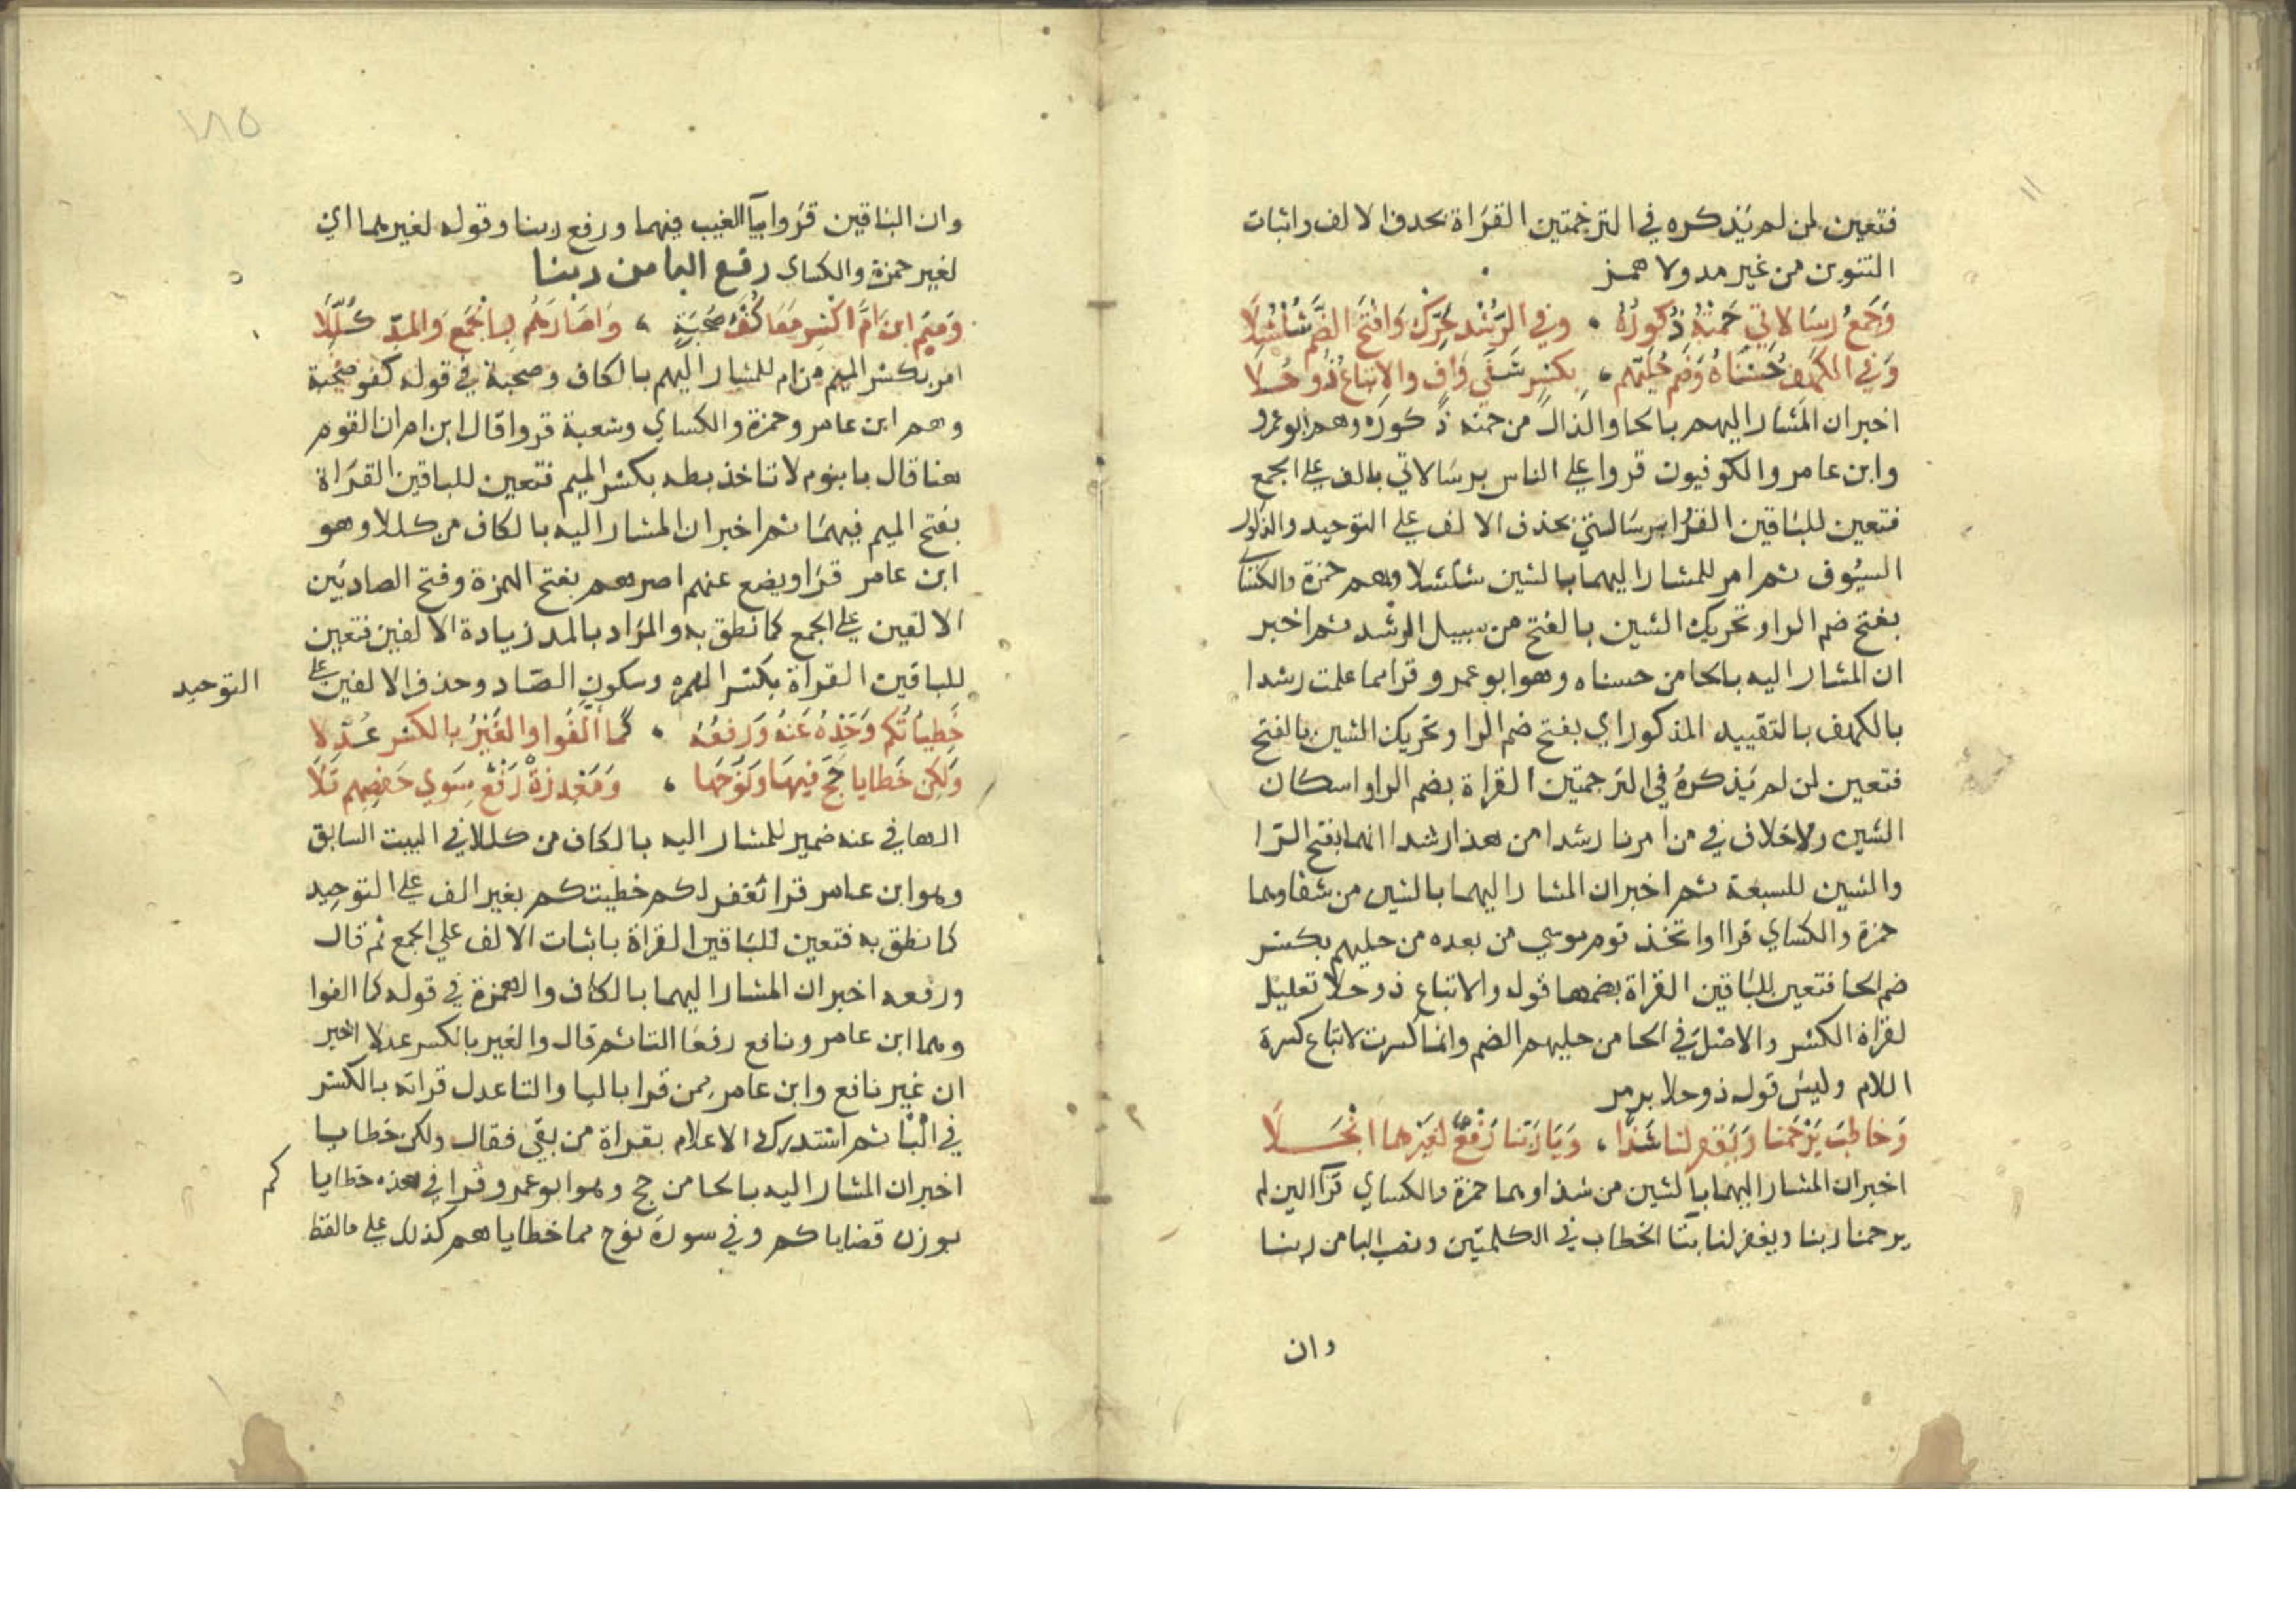 فتعين لمن لم يذكره في الترجمتين القراة بحذف الالف واثبات
التنوين من غير مد ولا همز
وَجَمْعُ رِسَالَاتِي حَمَتْهُ ذُكُورُهُ وفي الرُّشْدِ حَرِّكْ وَافْتَحِ الضَّمَّ شُلْشُلَا
وَفي الكهفِ حُسْنَاهُ وَضم حُلِيِّهِم بِكسرٍ شَفَى وَافٍ والاِتباعُ ذُو حُلَا
اخبر ان المشار اليهم بالحا والذال من حمته ذكوره وهم ابو عمرو
وابن عامر والكوفيون قروا على الناس برسالاتي بالف على الجمع
فتعين للباقين القرا برسالتي بحذف الالف على التوحيد والذكور
السيوف ثم امر للمشار اليهما بالشين شلشلا وهم حمزة والكسائي
بفتح ضم الرا وتحريك الشين بالفتح من سبيل الرشد ثم اخبر
ان المشار اليه بالحا من حسناه وهو ابو عمرو قرا مما علمت رشدا
بالكهف بالتقييد المذكور اي بفتح ضم الرا وتحريك الشين بالفتح
فتعين لمن لم يذكره في الترجمتين القراة بضم الرا واسكان
الشين ولا خلاف في من امرنا رشدا من هذا رشدا انهما بفتح الرا
والشين للسبعة ثم اخبر ان المشار اليهما بالشين من شفا وهما
حمزة والكساي قراا واتخذ قوم موسي من بعده من حليهم بكسر
ضم الحا فتعين للباقين القراة بضمها قوله والاتباع ذو حلا تعليل
لقراة الكسر والاصل في الحا من حليهم الضم وانما كسرت لاتباع كسرة
اللام وليس قوله ذو حلا برمز
وَخاطبَ يَرْحَمنا وَيَغفر لنا شَذًا وَبَا رَبَّنا رَفْعٌ لغَيْرِهما انْجَلَا
اخبر ان المشار اليهما بالشين من شذا وهما حمزة والكساي قرا لين لم
يرحمنا ربنا ويغفر لنا بتا الخطاب في الكلمتين ونصب البا من ربنا
وان
١٨٥
وان الباقين قروا بيا الغيب فيهما ورفع ربنا وقوله لغيرهما اي
لغير حمزة والكساى رفع البا من ربنا
وَمِيمَ ابنَ أُمَّ اكْسِر مَعًا كُفْؤَ صُحْبَةٍ وَاصَارَهُم بِالْجَمْعِ وَالمَدِّ كُلِّلَا
امر بكسر الميم من ام للمشار اليهم بالكاف وصحبة في قوله كفو صحبة
وهم ابن عامر وحمزة والكساي وشعبة قروا قال ابن ام ان القوم
هنا قال يابنوم لا تاخذ بطه بكسر الميم فتعين للباقين القراة
بفتح الميم فيهما ثم اخبر ان المشار اليه بالكاف من كللا وهو
ابن عامر قرا ويضع عنهم اصرهم بفتح الهمزة وفتح الصاد بين
الالفين على الجمع كما نطق به والمراد بالمد زيادة الالفين فتعين
للباقين القراة بكسر الهمزه وسكون الصاد وحذف الالفين على التوحيد
خَطِيآتُكم وَحِّدْهُ عَنْهُ وَرَفْعُهُ كَما أَلَّفُوا وَالغَيْرُ بِالكسر عَدَّلَا
وَلكِن خَطايا حَجَّ فيهَا وَنُوحِهَا وَمَعْذِرَةً رَفْعٌ سِوَى حَفْصِهِم تَلَا
الها في عنه ضمير للمشار اليه بالكاف من كللا في البيت السابق
وهو ابن عامر قرا تغفر لكم خطيتكم بغير الف على التوحيد
كما نطق به فتعين للباقين القراة باثبات الالف على الجمع ثم قال
ورفعه اخبر ان المشار اليهما بالكاف والهمزة في قوله كما الفوا
وهما ابن عامر ونافع رفعا التا ثم قال والغير بالكسر عدلا اخبر
ان غير نافع وابن عامر ممن قرا باليا والتا عدل قراته بالكسر
في التا ثم استدرك الاعلام بقراة من بقي فقال ولكن خطايا
اخبر ان المشار اليه بالحا من حج وهو ابو عمرو قرا في هذه خطايا كم
بوزن قضاياكم وفي سورة نوح مما خطاياهم كذلك على ما لفظ